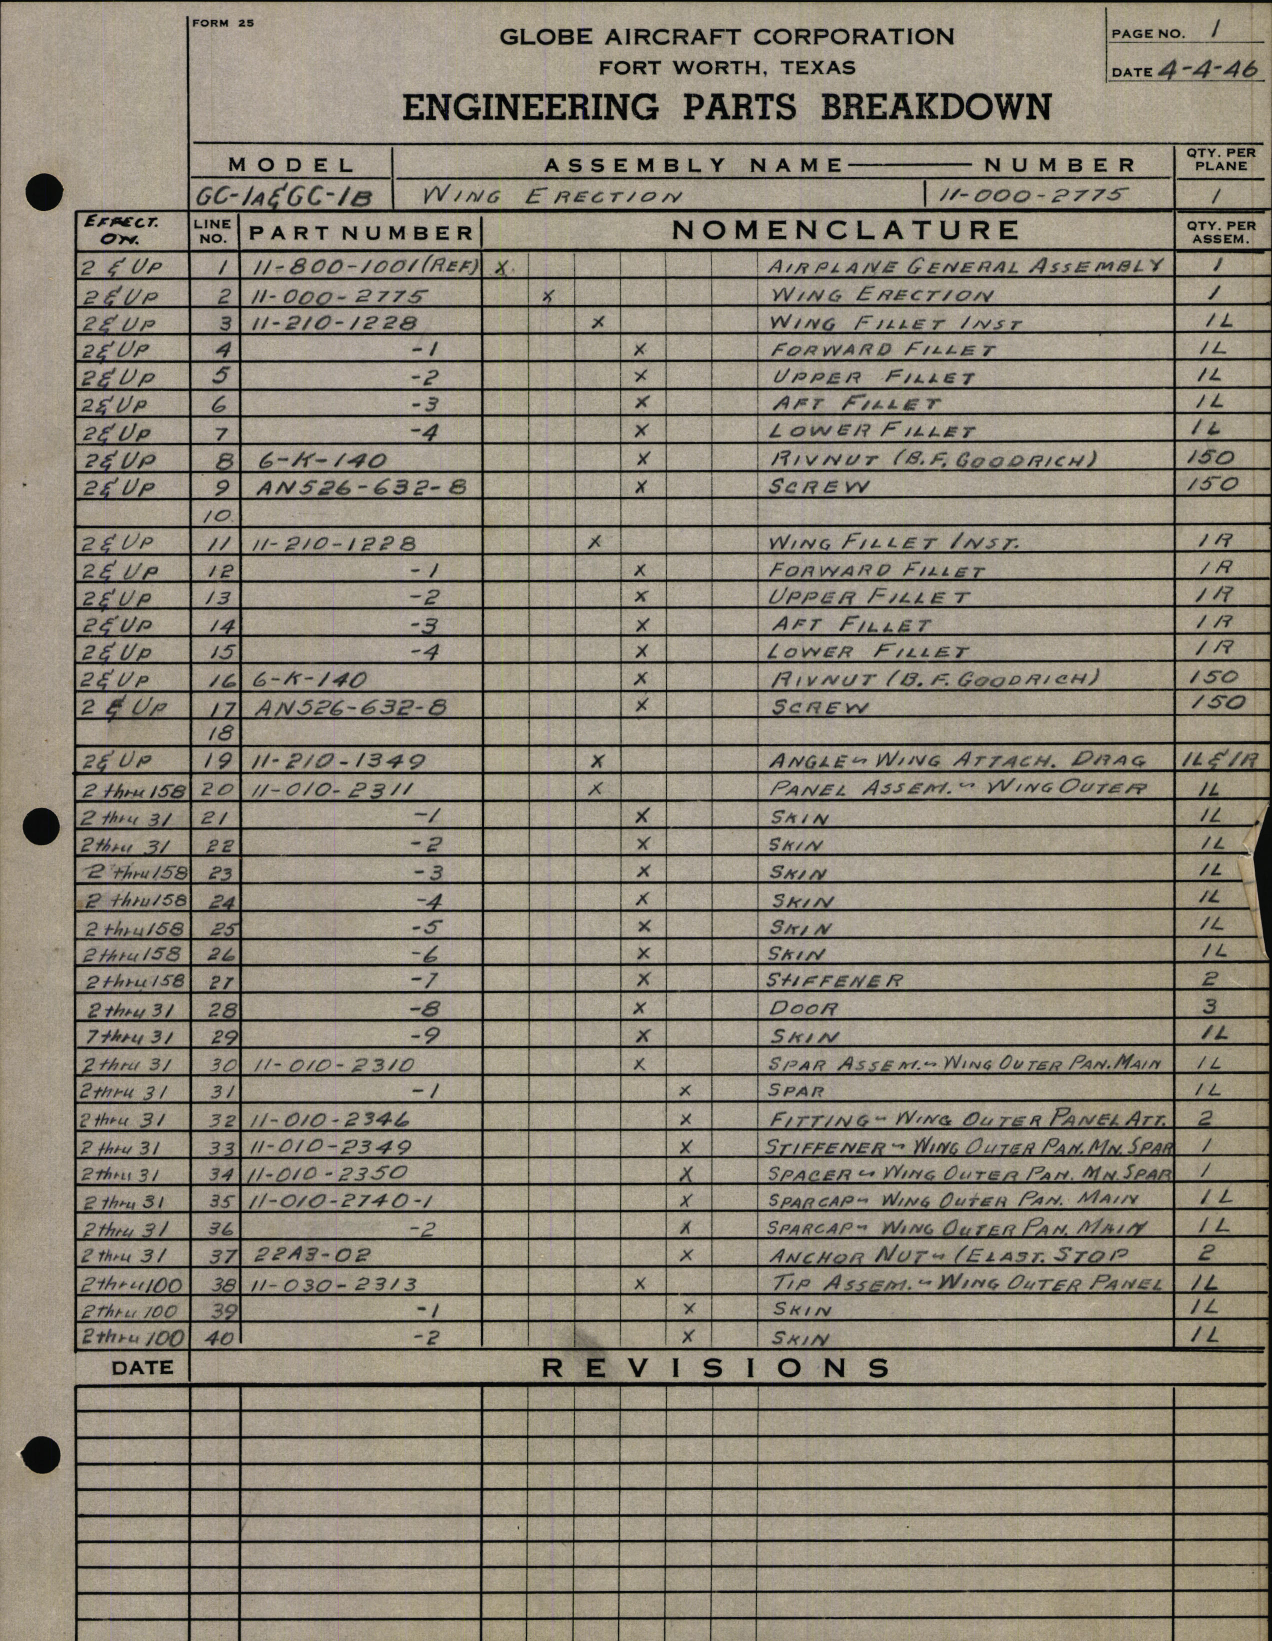 FORM 25
GLOBE AIRCRAFT CORPORATION
FORT WORTH, TEXAS
ENGINEERING PARTS BREAKDOWN
PAGE NO. 1
DATE 4-4-46
MODEL ASSEMBLY NAME NUMBER QTY. PER PLANE
GC-1A&GC-1B WING ERECTION 11-000-2775 1
EFFECT. ON. LINE NO. PART NUMBER NOMENCLATURE QTY. PER ASSEM.
2 & UP 1 11-800-1001(REF) X AIRPLANE GENERAL ASSEMBLY 1
2 & UP 2 11-000-2775 X WING ERECTION 1
2 & UP 3 11-210-1228 X WING FILLET INST 1L
2 & UP 4 -1 X FORWARD FILLET 1L
2 & UP 5 -2 X UPPER FILLET 1L
2 & UP 6 -3 X AFT FILLET 1L
2 & UP 7 -4 X LOWER FILLET 1L
2 & UP 8 6-K-140 X RIVNUT (B.F. GOODRICH) 150
2 & UP 9 AN526-632-8 X SCREW 150
10
2 & UP 11 11-210-1228 X WING FILLET INST. 1R
2 & UP 12 -1 X FORWARD FILLET 1R
2 & UP 13 -2 X UPPER FILLET 1R
2 & UP 14 -3 X AFT FILLET 1R
2 & UP 15 -4 X LOWER FILLET 1R
2 & UP 16 6-K-140 X RIVNUT (B.F. GOODRICH) 150
2 & UP 17 AN526-632-8 X SCREW 150
18
2 & UP 19 11-210-1349 X ANGLE~WING ATTACH. DRAG 1L&1R
2 thru 158 20 11-010-2311 X PANEL ASSEM.~WING OUTER 1L
2 thru 31 21 -1 X SKIN 1L
2 thru 31 22 -2 X SKIN 1L
2 thru 158 23 -3 X SKIN 1L
2 thru 158 24 -4 X SKIN 1L
2 thru 158 25 -5 X SKIN 1L
2 thru 158 26 -6 X SKIN 1L
2 thru 158 27 -7 X STIFFENER 2
2 thru 31 28 -8 X DOOR 3
7 thru 31 29 -9 X SKIN 1L
2 thru 31 30 11-010-2310 X SPAR ASSEM.~WING OUTER PAN. MAIN 1L
2 thru 31 31 -1 X SPAR 1L
2 thru 31 32 11-010-2346 X FITTING~WING OUTER PANEL ATT. 2
2 thru 31 33 11-010-2349 X STIFFENER~WING OUTER PAN. MN. SPAR 1
2 thru 31 34 11-010-2350 X SPACER~WING OUTER PAN. MN. SPAR 1
2 thru 31 35 11-010-2740-1 X SPARCAP~WING OUTER PAN. MAIN 1L
2 thru 31 36 -2 X SPARCAP~WING OUTER PAN. MAIN 1L
2 thru 31 37 22A3-02 X ANCHOR NUT~(ELAST. STOP 2
2 thru 100 38 11-030-2313 X TIP ASSEM.~WING OUTER PANEL 1L
2 thru 100 39 -1 X SKIN 1L
2 thru 100 40 -2 X SKIN 1L
DATE REVISIONS